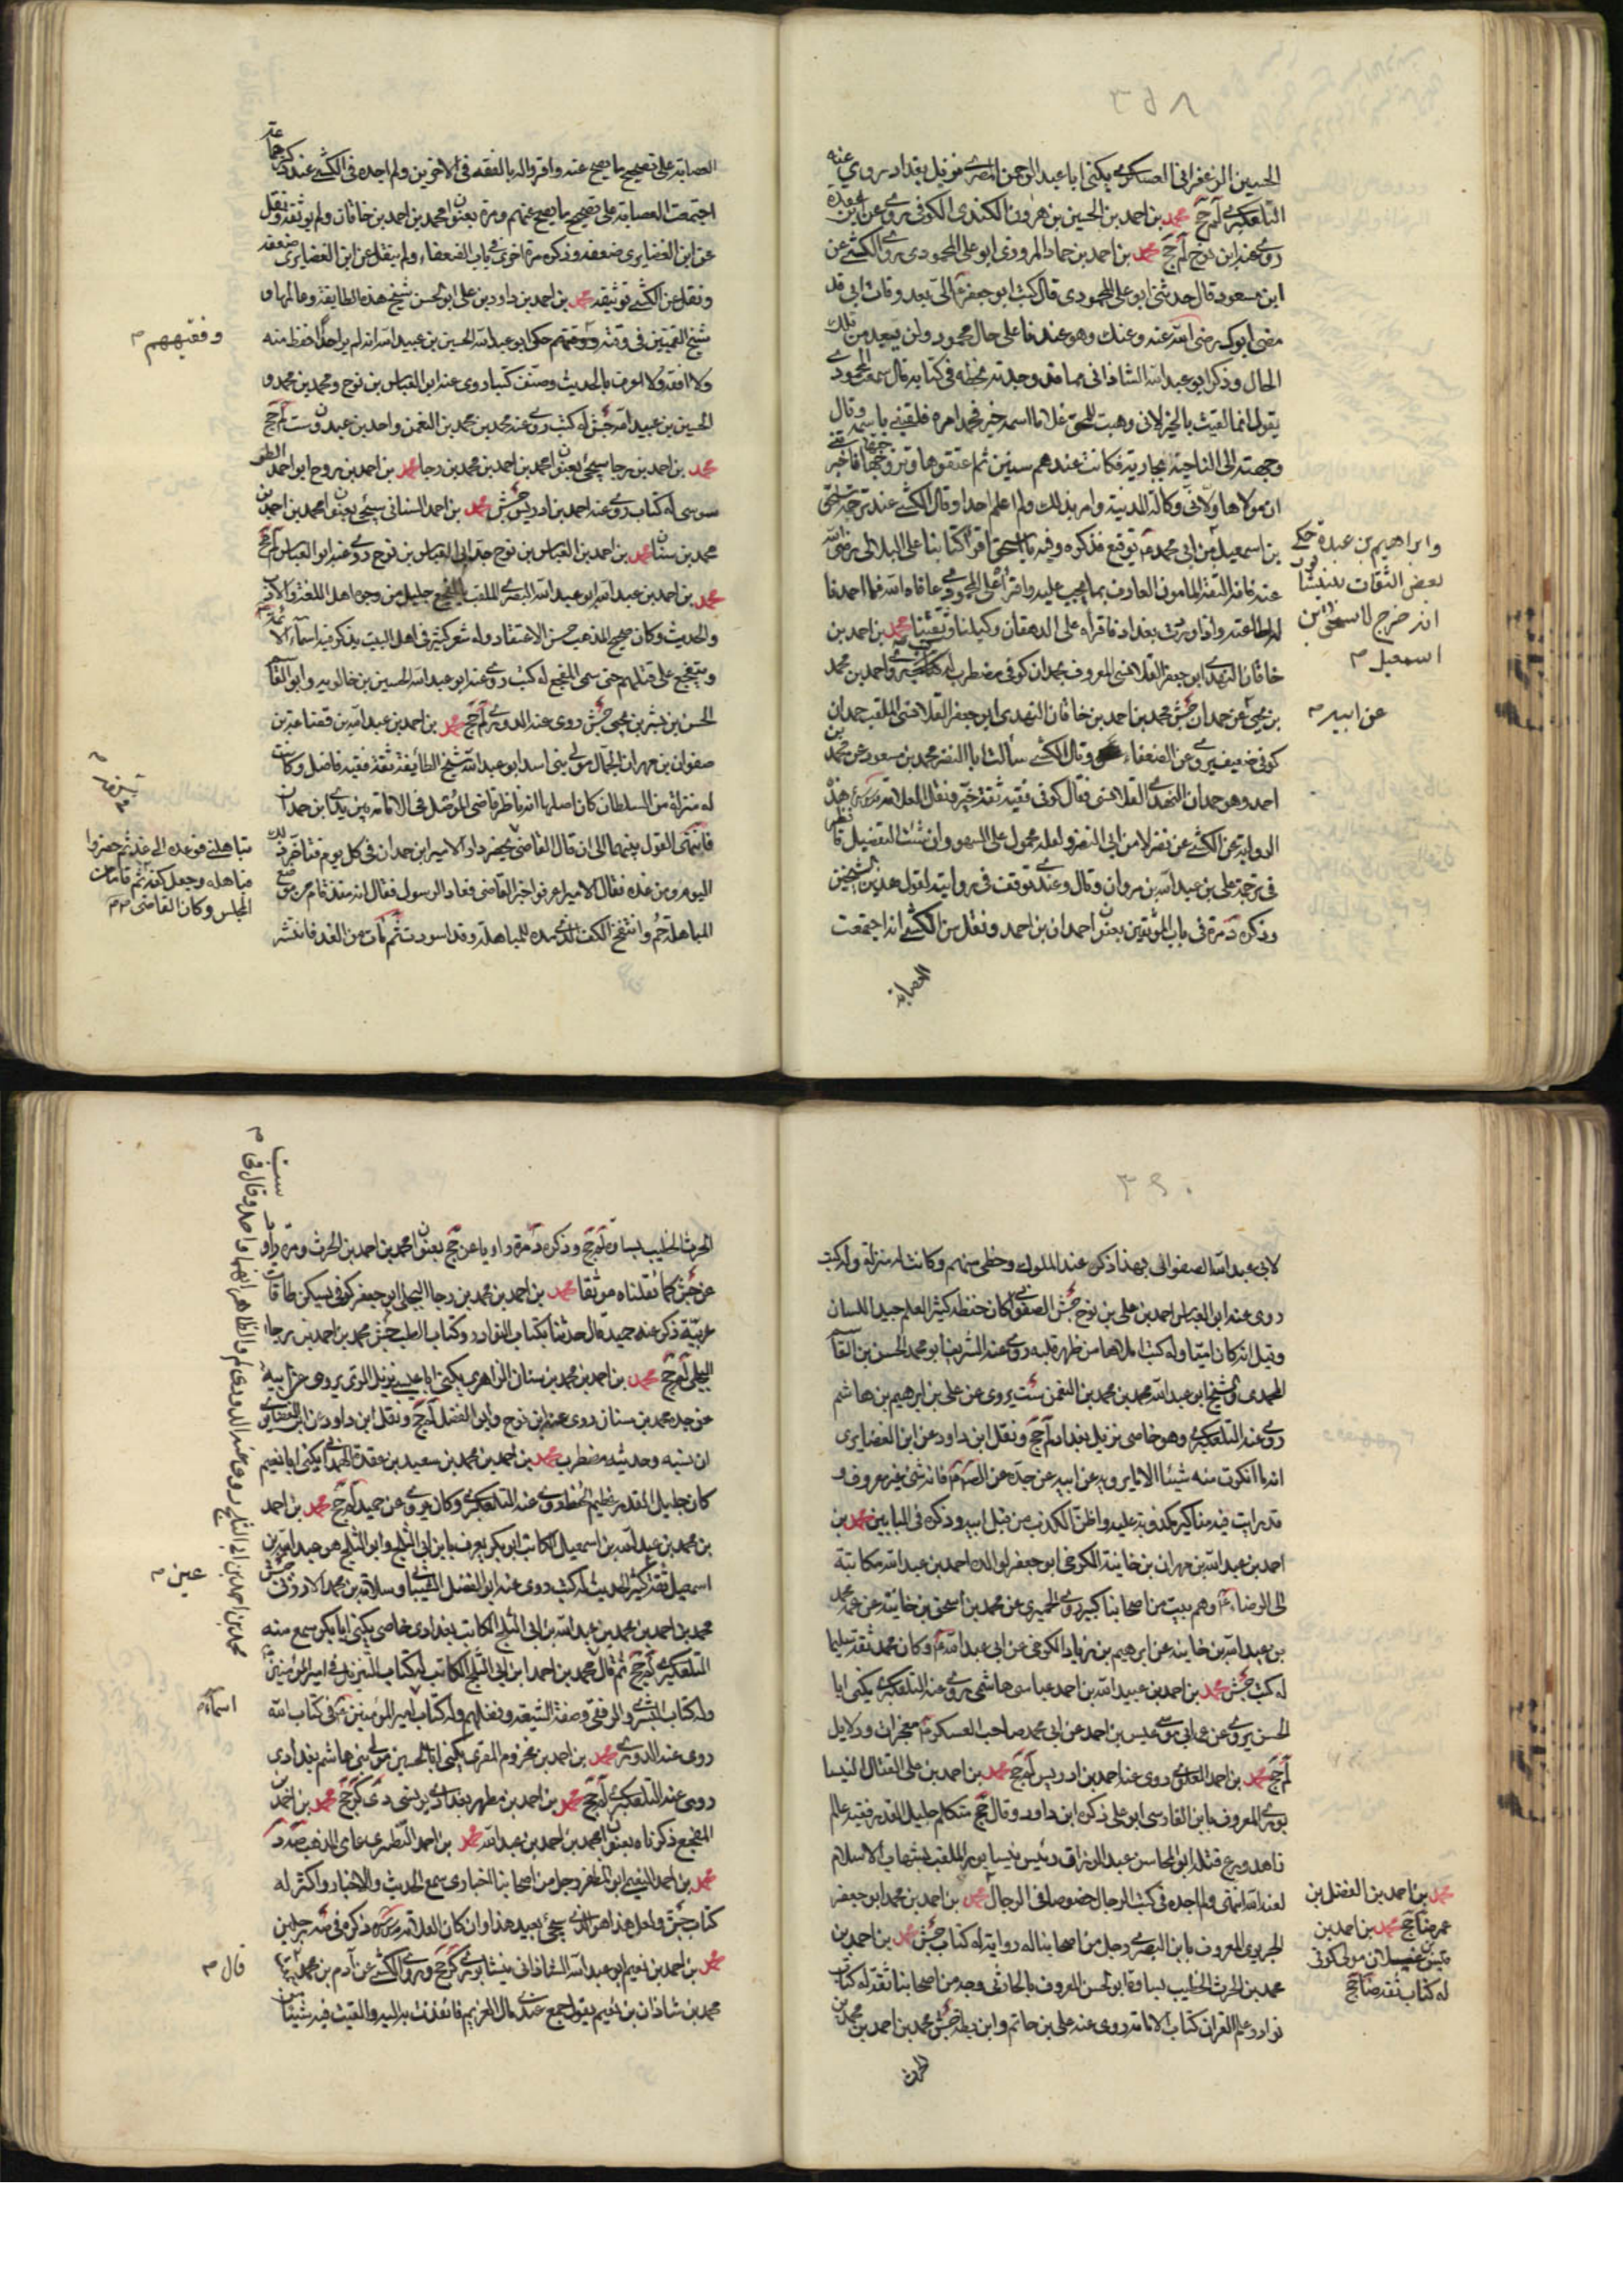 ٣٥٨
الحسين الزعفراني العسكري يكنى ابا عبد الرحمن المصري نزيل بغداد يروي عنه
التلعكبري لم جخ محمد بن احمد بن الحسين بن هرون الكندي الكوفي يروي عن ابن عقدة
روى عنه ابن نوح لم جخ محمد بن احمد بن حماد المروزي ابو علي المحمودي روى الكشي عن
ابن مسعود قال حدثني ابو علي المحمودي قال كتب ابو جعفر ع الي بعد وفات ابي قد
مضى ابوك رضي الله عنه وعنك وهو عندنا على حال محمود ولن تبعد من تلك
الحال وذكر ابو عبد الله الشاذاني مما قد وجدته بخطه في كتابه قال سمعت المحمودي
يقول انما لقبت بالخير لاني وهبت للحق غلاما اسمه خير فحمد امره فلقبني باسمه وقال
وجهت الى الناحية بجارية فكانت عندهم سنين ثم اعتقوها وتزوجتها فاخبر
ان مولاها ولاني وكالة المدينة وامر بذلك ولم اعلم احدا وقال الكشي عند ترجمة اسحق
بن اسمعيل من ابي محمد ع توقيع فذكره وفيه يا اسحق اقرا كتابنا على البلالي رضي الله
عنه فانه الثقة المامون العارف بما يجب عليه واقراه على المحمودي عافاه الله فما احمدنا
له لطاعته واذا وردت بغداد فاقراه على الدهقان وكيلنا وثقتنا محمد بن احمد بن
خاقان النهدي ابو جعفر القلانسي المعروف بحمدان كوفي مضطرب له كتب واحمد بن محمد
بن يحيى عن حمدان جش محمد بن احمد بن خاقان النهدي ابو جعفر القلانسي الملقب حمدان
كوفي ضعيف يروي عن الضعفاء وقال الكشي سألت ابا النضر محمد بن مسعود عن محمد بن
احمد وهو حمدان النهدي القلانسي فقال كوفي فقيه ثقة خير فنقل العلامة هذه
الرواية عن الكشي عن نضر لا من ابي النضر ولعله محمول على السهو وان شئت التفصيل فانظر
في ترجمة علي بن عبد الله بن مروان وقال وعندي توقف في روايته لقول هذين الشيخين
وذكره د مرة في باب الموثقين بعنوان احمدان بن احمد ونقل من الكشي انه اجتمعت
العصابة
وابراهيم بن عبدة حكى
بعض الثقات بنيشابور
انه خرج لاسحق بن
اسمعيل م
عن ابيه م
العصابة على تصحيح ما يصح عنه واقروا له بالفقه في الاخرين ولم اجده في الكشي عند ذكر جماعة
اجتمعت العصابة على تصحيح ما يصح عنهم ومرة بعنوان محمد بن احمد بن خاقان ولم يوثقه ونقل
عن ابن الغضايري ضعفه وذكره مرة اخرى في باب الضعفاء ولم ينقل عن ابن الغضايري ضعفه
ونقل عن الكشي توثيقه محمد بن احمد بن داود بن علي ابو الحسن شيخ هذه الطايفة وعالمها و
شيخ القميين في وقته وفقيههم حكى ابو عبد الله الحسين بن عبيد الله انه لم ير احدا احفظ منه
ولا افقه ولا اعرف بالحديث وصنف كتبا روى عنه ابو العباس بن نوح ومحمد بن محمد و
الحسين بن عبيد الله جش له كتب روى عنه محمد بن محمد بن النعمن واحمد بن عبدون ست لم جخ
محمد بن احمد بن رجا سيجئ بعنوان محمد بن احمد بن محمد بن رجا محمد بن احمد بن روح ابو احمد الطر
سوسي له كتاب روى عنه احمد بن ادريس جش محمد بن احمد السناني سيجئ بعنوان محمد بن احمد بن
محمد بن سنان محمد بن احمد بن العباس بن نوح جد ابي العباس بن نوح روى عنه ابو العباس لم جخ
محمد بن احمد بن عبد الله ابو عبد الله البصري الملقب المفجع جليل من وجوه اهل اللغة والادب
والحديث وكان صحيح المذهب حسن الاعتقاد وله شعر كثير في اهل البيت يذكر فيه اسماء الائمة
ويتفجع على قتلهم حتى سمى المفجع له كتب روى عنه ابو عبد الله الحسين بن خالويه وابو القاسم
الحسن بن بشر بن يحيى جش روى عنه الدوري لم جخ محمد بن احمد بن عبد الله بن قضاعة بن
صفوان بن مهران الجمال مولى بني اسد ابو عبد الله شيخ الطائفة ثقة فقيه فاضل وكانت
له منزلة من السلطان كان اصلها انه ناظر قاضي الموصل في الامامة بين يدي ابن حمدان
فانتهى القول بينهما الى ان قال للقاضي يحضر دار الامير ابن حمدان في كل يوم فتاخر ذلك
اليوم ومن غده فقال الامير اعرفوا خبر القاضي فعاد الرسول فقال انه منذ قام من موضع
المباهلة حم وانتفخ الكف الذي مده للمباهلة وقد اسودت ثم مات من الغد فانتشر
وفقيههم م
تباهلني فوعده الى غد ثم حضروا
فباهله وجعل كفه في كفه ثم قاما من
المجلس وكان القاضي م
٣٩٠
لابي عبد الله الصفواني بهذا ذكر عند الملوك وحظى منهم وكانت له منزلة وله كتب
روى عنه ابو العباس احمد بن علي بن نوح جش الصفواني كان حفظة كثير العلم جيد اللسان
وقيل انه كان اميا وله كتب املاها من ظهر قلبه روى عنه الشريف ابو محمد الحسن بن القاسم
المحمدي والشيخ ابو عبد الله محمد بن محمد بن النعمن ست يروي عن علي بن ابراهيم بن هاشم
روى عنه التلعكبري وهو خاصي نزيل بغداد لم جخ ونقل ابن داود عن ابن الغضايري
انه ما انكرت منه شيئا الا ما يرويه عن ابيه عن جده عن الصادق ع فانه شئ غير معروف و
قد رايت فيه مناكير مكذوبة عليه واظن الكذب من قبل ابيه وذكره في البابين محمد بن
احمد بن عبد الله بن مهران بن خانبة الكرخي ابو جعفر لوالده احمد بن عبد الله مكاتبة
الى الرضا ع وهم بيت من اصحابنا كبير روى الحميري عن محمد بن اسحق بن خانبة عن عمه محمد
بن عبد الله بن خانبة عن ابراهيم بن زياد الكرخي عن ابي عبد الله ع وكان محمد ثقة سليما
له كتب جش محمد بن احمد بن عبيد الله بن احمد عباسي هاشمي روى عنه التلعكبري يكنى ابا
الحسن يروي عن عم ابي موسى عيسى بن احمد عن ابي محمد صاحب العسكر ع معجزات ودلايل
لم جخ محمد بن احمد العلوي روى عنه احمد بن ادريس لم جخ محمد بن احمد بن علي الفتال النيسا
بوري المعروف بابن الفارسي ابو علي ذكره ابن داود وقال جخ متكلم جليل القدر فقيه عالم
زاهد ورع قتله ابو المحاسن عبد الرزاق رئيس نيسابور الملقب بشهاب الاسلام
لعنه الله انتهى ولم اجده في كتب الرجال خصوصا في الرجال محمد بن احمد بن محمد ابو جعفر
الجريري المعروف بابن البصري رجل من اصحابنا له رواية له كتاب جش محمد بن احمد بن
محمد بن الحرث الخطيب بساوة ابو الحسن المعروف بالحارثي وجه من اصحابنا ثقة له كتاب
نوادر علم القران كتاب الامامة روى عنه علي بن حاتم وابن بطة جش محمد بن احمد بن محمد بن
الحرث
محمد بن احمد بن الفضل بن
عمر ضا جخ محمد بن احمد بن
قيس بن غيلان مولى كوفي
له كتاب ثقة ضا جخ
الحرث الخطيب بساوة لم جخ وذكره د مرة راويا عن جخ بعنوان محمد بن احمد بن الحرث ومرة راويا
عن جش كما نقلناه موثقا محمد بن احمد بن محمد بن رجا البجلي ابو جعفر كوفي يسكن طاقات
عرينة ذكر عنه حميد قال حدثنا بكتاب النوادر وكتاب الطب جش محمد بن احمد بن رجا
البجلي لم جخ محمد بن احمد بن محمد بن سنان الزاهري يكنى ابا عيسى نزيل الري يروى عن ابيه
عن جده محمد بن سنان روى عنه ابن نوح وابو المفضل لم جخ ونقل ابن داود عن ابن الغضايري
ان نسبه وحديثه مضطرب محمد بن احمد بن محمد بن سعيد بن عقدة الهمداني يكنى ابا نعيم
كان جليل القدر عظيم الحفظ روى عنه التلعكبري وكان يروى عن حميد لم جخ محمد بن احمد
بن محمد بن عبد الله بن اسمعيل الكاتب ابو بكر يعرف بابن ابي الثلج وابو الثلج هو عبد الله بن
اسمعيل ثقة كثير الحديث له كتب روى عنه ابو المفضل الشيباني وسلامة بن محمد الارزني جش
محمد بن احمد بن محمد بن عبد الله بن ابي الثلج الكاتب بغدادي خاصي يكنى ابا بكر سمع منه
التلعكبري لم جخ ثم قال محمد بن احمد ابن ابي الثلج الكاتب له كتاب التنزيل في امير المؤمنين ع
وله كتاب البشرى والزلفى وصفة الشيعة وفضلهم وله كتاب امير المؤمنين ع في كتاب الله
روى عنه الدوري محمد بن احمد بن مخزوم المقري يكنى ابا الحسين مولى بني هاشم بغدادي
روى عنه التلعكبري لم جخ محمد بن احمد بن مطهر بغدادي يونسي دي كر جخ محمد بن احمد
المفجع ذكرناه بعنوان محمد بن احمد بن عبد الله محمد بن احمد النطنزي عامي المذهب
محمد بن احمد النعيمي ابو المظفر رجل من اصحابنا اخباري سمع الحديث والاخبار واكثر له
كتاب جش ولعل هذا هو الذي سيجئ بعيد هذا وان كان العلامة ذكره في ترجمتين
محمد بن احمد بن نعيم ابو عبد الله الشاذاني نيشابوري كر جخ وروى الكشي عن آدم بن محمد
محمد بن شاذان بن نعيم يقول جمع عندي مال للغريم فانفذت به اليه والقيت فيه شيئا
اسماء م
قال م